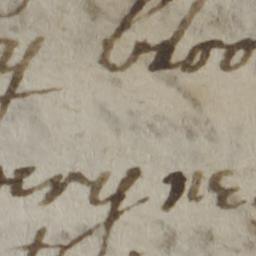 y bloo
very ne